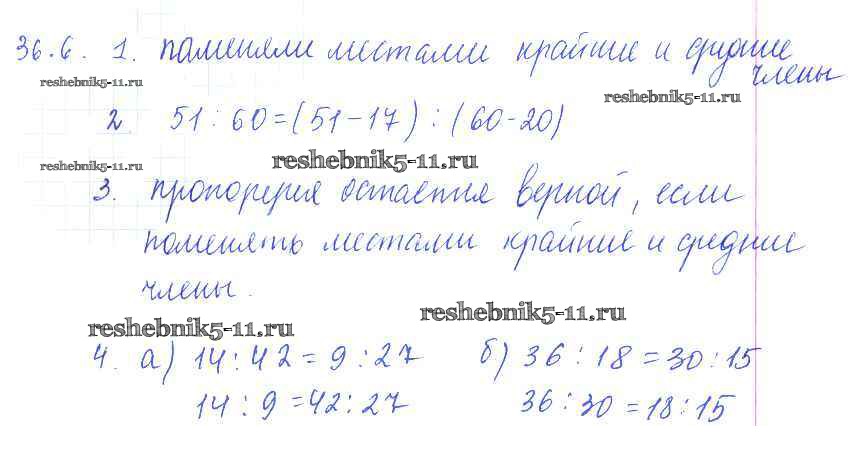 36.6. 1. поменяли местами крайние и средние члены
reshebnik5-11.ru
reshebnik5-11.ru
2. 51 : 60 = (51 - 17) : (60 - 20)
reshebnik5-11.ru
reshebnik5-11.ru
3. пропорция остается верной, если
поменять местами крайние и средние
члены.
reshebnik5-11.ru
reshebnik5-11.ru
4. а) 14 : 42 = 9 : 27 б) 36 : 18 = 30 : 15
14 : 9 = 42 : 27 36 : 30 = 18 : 15